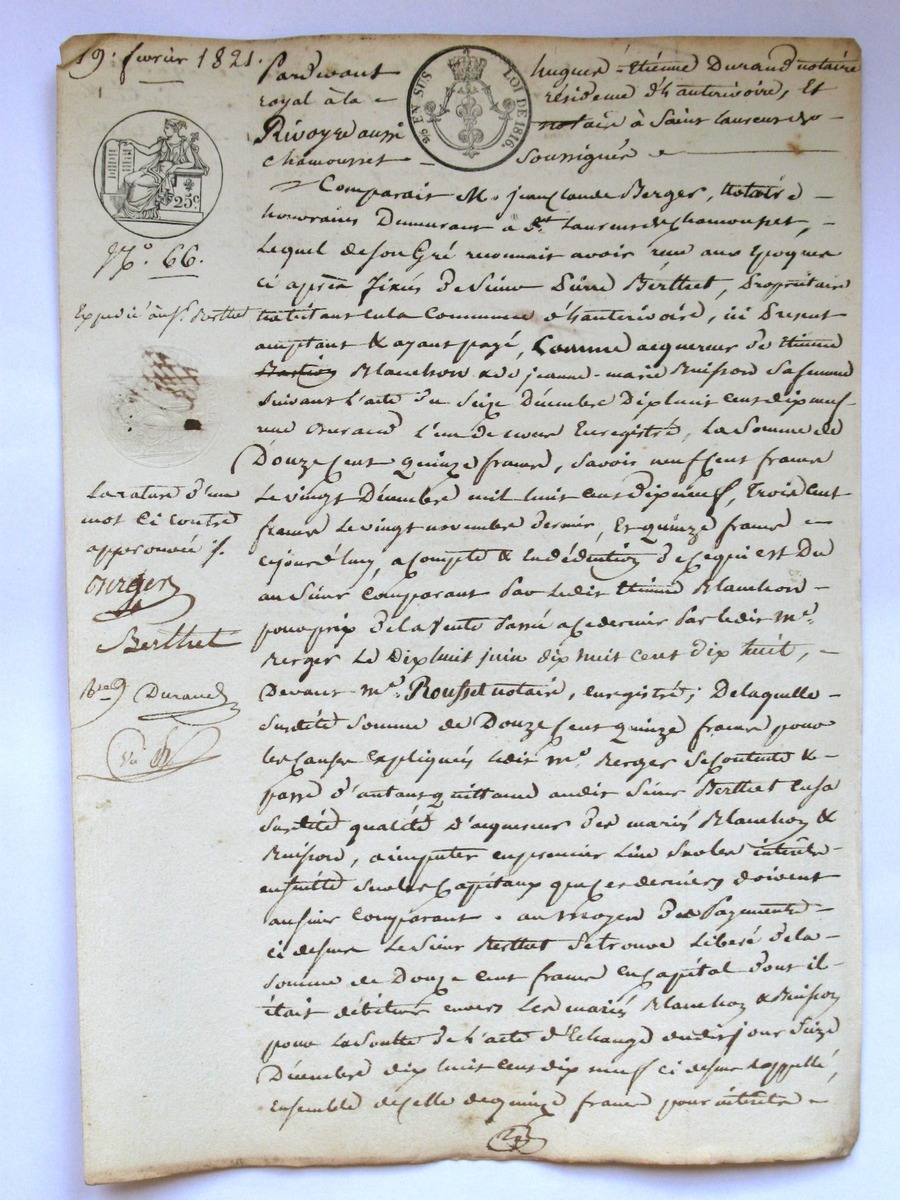 19. fevrier 1821.
Pardevant hugues-Etienne Durand notaire
royal à la résidence d'hauterivoire, Et
Rivoyre aussi notaire à Saint Laurent de
chamousset Soussignés
LOI DE 1816.
EN SUS
25c
N.o 66.
Expedié au s. Berthet
Comparait M. jean Claude Berger, notaire
honoraire Demeurant à St. Laurent de chamousset,
Lequel de son Gré reconnait avoir reçu aux Epoques
ci après fixées de Sieur Pierre Berthet, Propriétaire
habitant en la Commune d'hauterivoire, ici Present
acceptant & ayant payé, Comme acquereur de Etienne
Blanchon & de jeanne-marie Buisson sa femme
suivant l'acte du Seize Décembre Dix huit cent dix neuf
reçu Durand l'un de nous Enregistré, La Somme de
Douze Cent quinze francs, savoir neuf Cent francs
Le vingt Décembre mil huit cent dix neuf, Trois cent
francs Le vingt novembre dernier, Et quinze francs
cejourd'huy, a Compte & En déduction de ce qui est Du
au Sieur Comparant Par ledit Etienne Blanchon
pour prix de la vente Passée à ce dernier Par ledit Me.
Berger Le Dix huit juin dix huit cent dix huit,
Devant Me. Rousset notaire, enregistré; De laquelle
susdite somme de Douze Cent quinze francs pour
les causes expliquées ledit Me. Berger se Contente &
passe d'autant quittance audit Sieur Berthet en sa
susdite qualité d'acquereur des mariés Blanchon &
Buisson, a imputer en premier lieu sur les intérêts
ensuite sur les Capitaux que ces derniers doivent
au sieur Comparant. au moyen des Payements
ci dessus Le Sieur Berthet se trouve Libéré de la
somme de Douze cent francs en Capital dont il
était débiteur envers Les mariés Blanchon & Buisson
pour La Soulte de L'acte d'Echange dudit jour Seize
Décembre dix huit cent dix neuf ci dessus Rappellé,
Ensemble de celle de quinze francs pour intérêts
La rature d'un
mot Ci contre
approuvée
Berger
Berthet
Durand